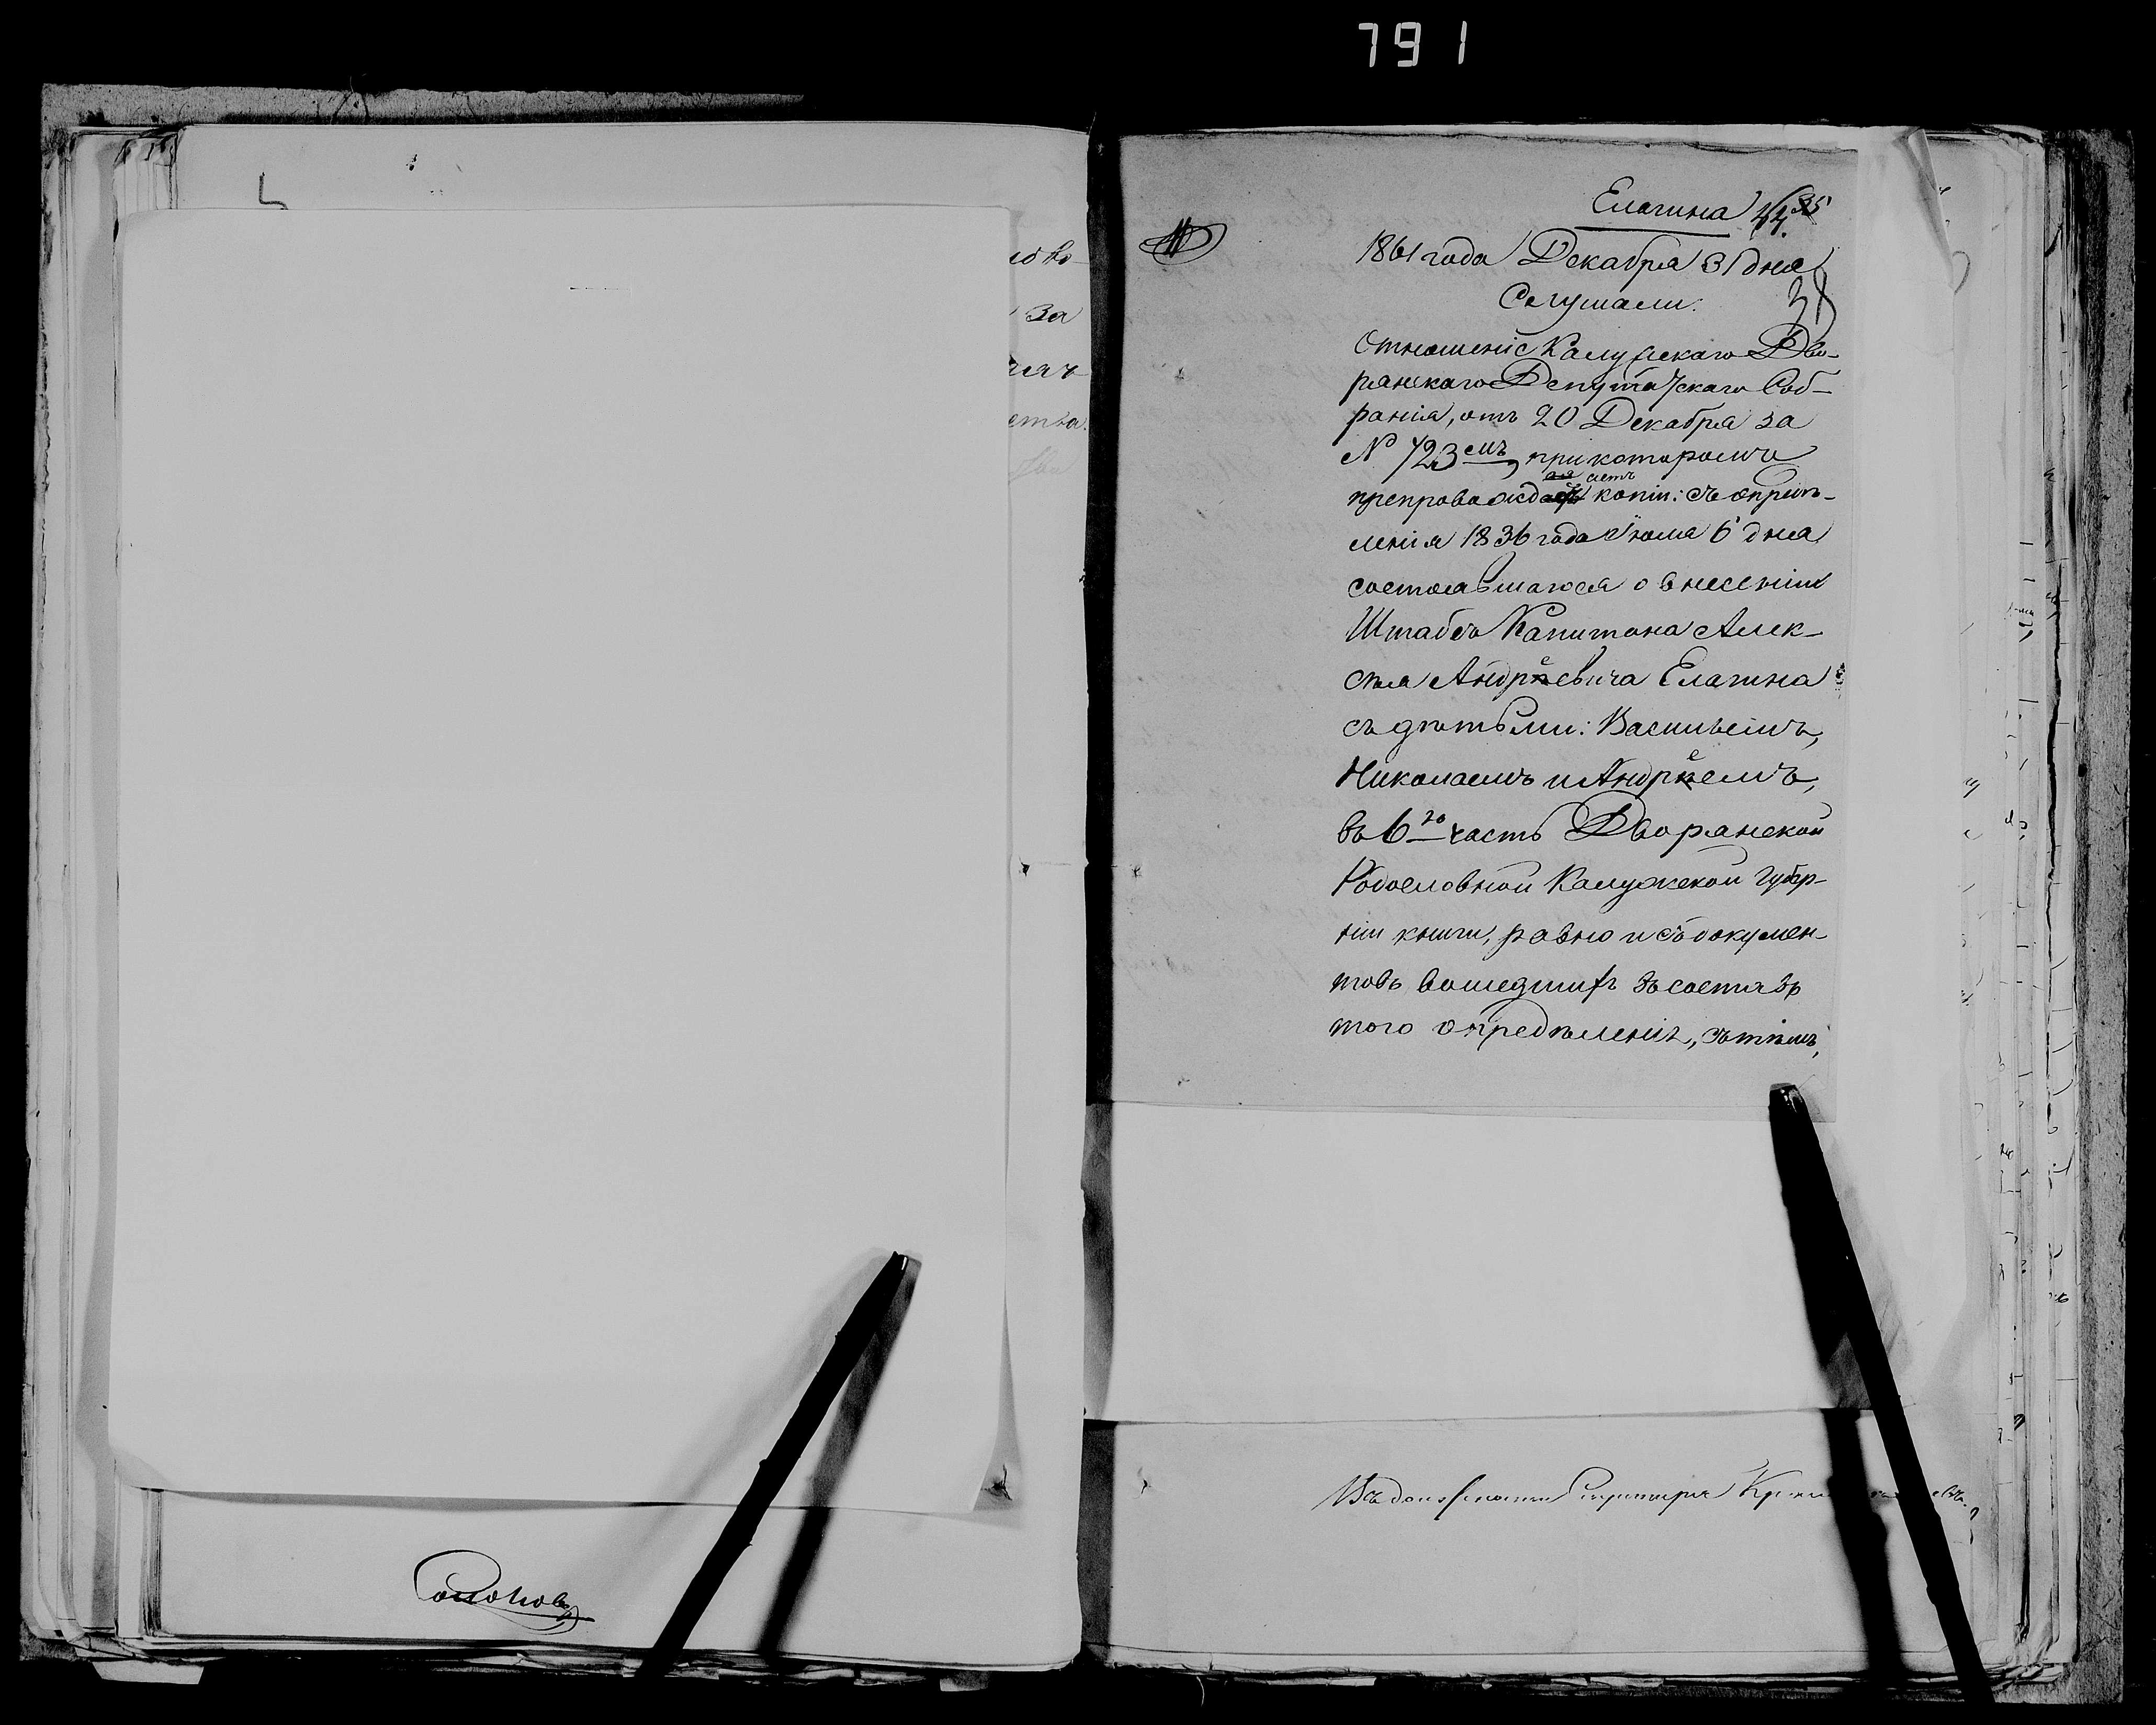 791
Елагина 44.
1861 года Декабря 31 дня
38
Слушали:
Отношеніе Калужскаго Дво-
рянскаго Депутатскаго Соб-
ранія, отъ 20 Декабря за
№ 723 емъ, при которомъ
препровождаетъ копіи: съ опредѣ-
ленія 1836 года Іюля 6 дня
состоявшагося о внесеніи
Штабсъ Капитана Алек-
сѣя Андреевича Елагина
съ дѣтьми: Васильемъ,
Николаемъ и Андреемъ,
въ 6ю часть Дворянской
Родословной Калужской Губер-
ніи книги, равно и съ докумен-
товъ вошедшихъ въ составъ
того опредѣленія, съ тѣмъ,
ство
за
ства.
Секретаря